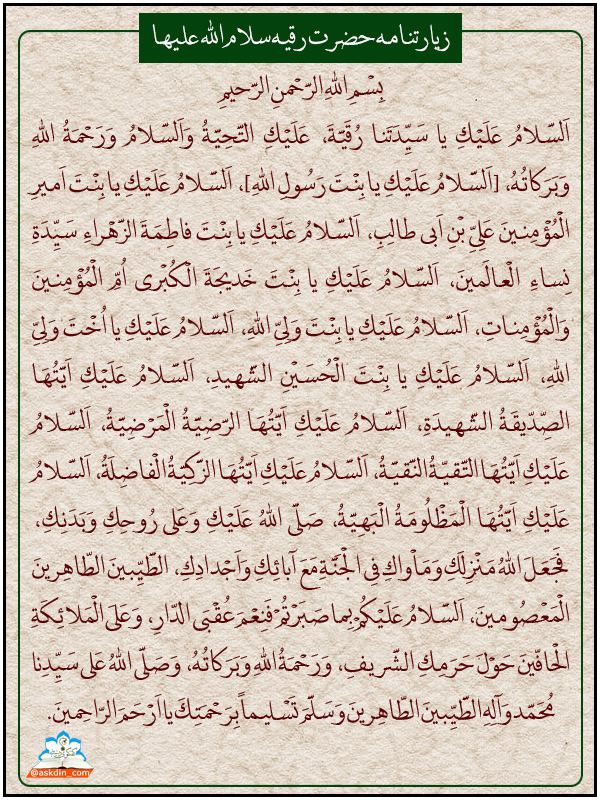 زیارتنامه حضرت رقیه سلام الله علیها
بِسْمِ اللهِ الرَّحْمنِ الرَّحيمِ
اَلسَّلامُ عَلَيْكِ يا سَيِّدَتَنا رُقَيَّةَ، عَلَيْكِ التَّحِيَّةُ وَاَلسَّلامُ وَرَحْمَةُ اللهِ
وَبَرَكاتُهُ، [اَلسَّلامُ عَلَيْكِ يا بِنْتَ رَسُولِ اللهِ]، اَلسَّلامُ عَلَيْكِ يا بِنْتَ اَميرِ
الْمُؤْمِنينَ عَلِيِّ بْنِ اَبى طالِبِ، اَلسَّلامُ عَلَيْكِ يا بِنْتَ فاطِمَةَ الزَّهْراءِ سَيِّدَةِ
نِساءِ الْعالَمينَ، اَلسَّلامُ عَلَيْكِ يا بِنْتَ خَديجَةَ الْكُبْرى اُمِّ الْمُؤْمِنينَ
وَالْمُؤْمِناتِ، اَلسَّلامُ عَلَيْكِ يا بِنْتَ وَلِيِّ اللهِ، اَلسَّلامُ عَلَيْكِ يا اُخْتَ وَلِيِّ
اللهِ، اَلسَّلامُ عَلَيْكِ يا بِنْتَ الْحُسَيْنِ الشَّهيدِ، اَلسَّلامُ عَلَيْكِ اَيَّتُهَا
الصِّدّيقَةُ الشَّهيدَةِ، اَلسَّلامُ عَلَيْكِ اَيَّتُهَا الرَّضِيَّةُ الْمَرْضِيَّةُ، اَلسَّلامُ
عَلَيْكِ اَيَّتُهَا التَّقيَّةُ النَّقيَّةُ، اَلسَّلامُ عَلَيْكِ اَيَّتُهَا الزَّكِيَّةُ الْفاضِلَةُ، اَلسَّلامُ
عَلَيْكِ اَيَّتُهَا الْمَظْلُومَةُ الْبَهِيَّةُ، صَلَّى اللهُ عَلَيْكِ وَعَلى رُوحِكِ وَبَدَنِكِ،
فَجَعَلَ اللهُ مَنْزِلَكِ وَمَاْواكِ فِى الْجَنَّةِ مَعَ آبائِكِ وَاَجْدادِكِ، الطَّيِّبينَ الطّاهِرينَ
الْمَعْصُومينَ، اَلسَّلامُ عَلَيْكُمْ بِما صَبَرْتُمْ فَنِعْمَ عُقْبَى الدّارِ، وَعَلَى الْمَلائِكَةِ
الْحافّينَ حَوْلَ حَرَمِكِ الشَّريفِ، وَرَحْمَةُ اللهِ وَبَرَكاتُهُ، وَصَلَّى اللهُ عَلى سَيِّدِنا
مُحَمَّدٍ وَآلِهِ الطَّيِّبينَ الطّاهِرينَ وَسَلَّمَ تَسْليماً بِرَحْمَتِكَ يا اَرْحَمَ الرّاحِمينَ.
@askdin_com